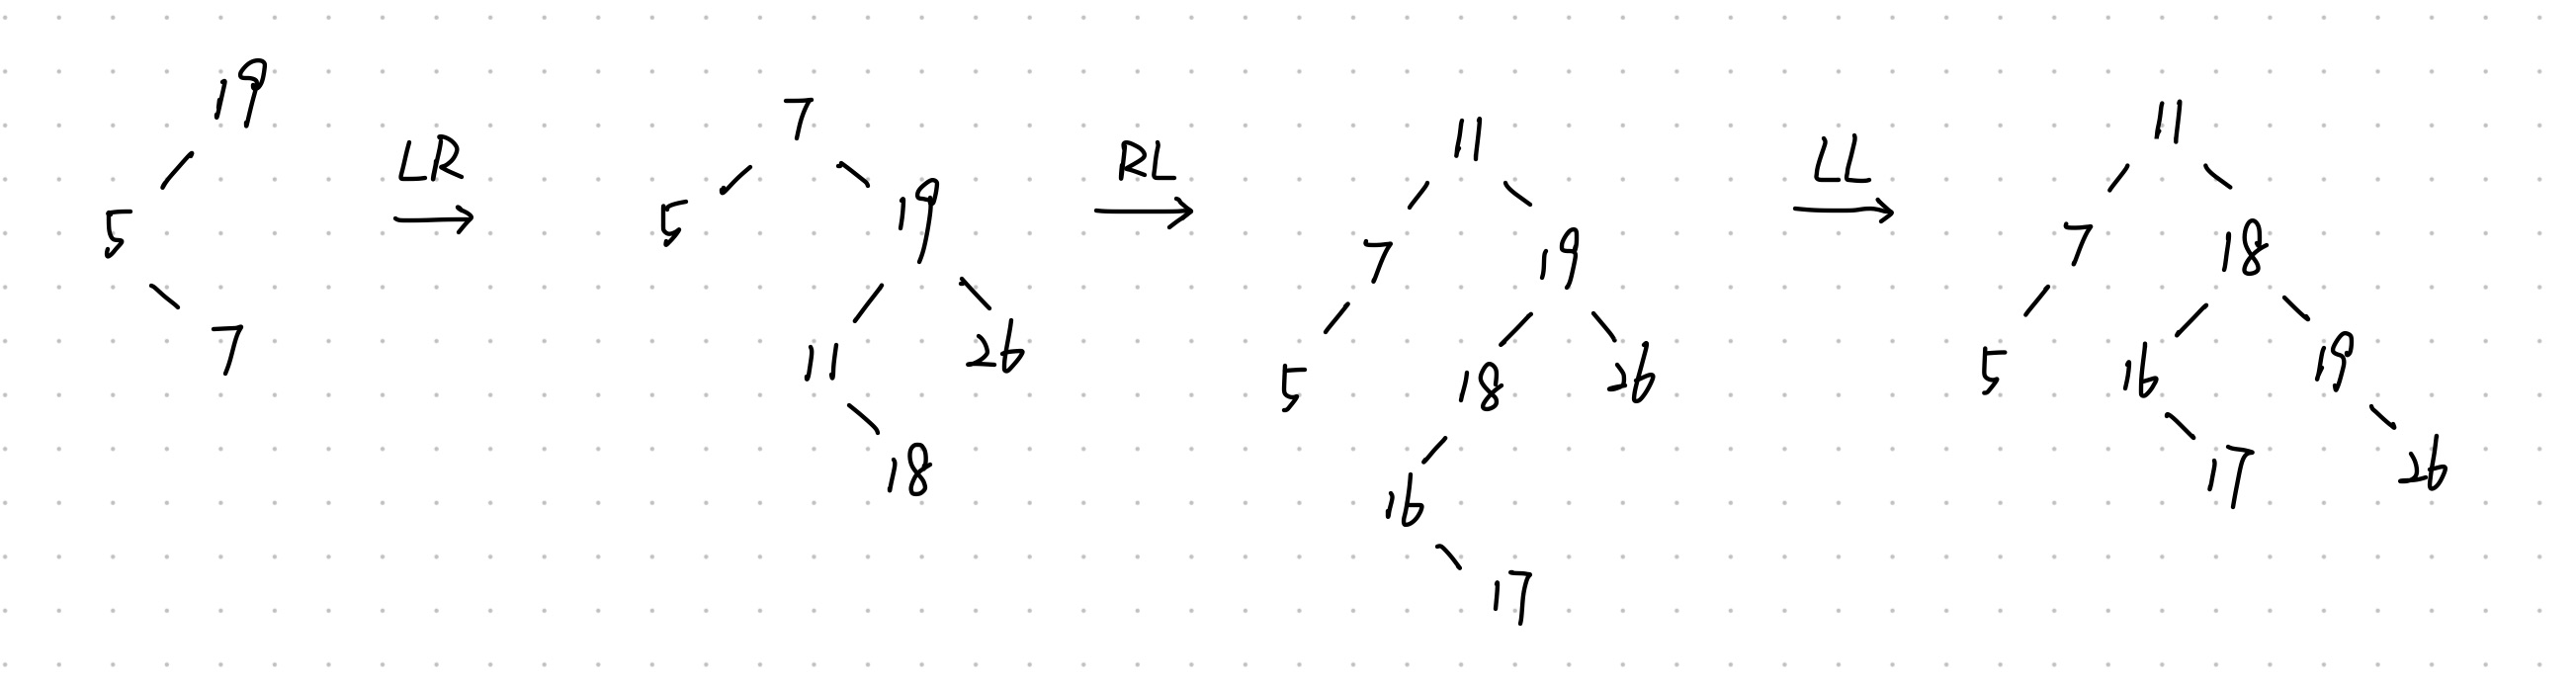 19
5
7
LR
7
5 19
11 26
18
RL
11
7 19
5 18 26
16
17
LL
11
7 18
5 16 19
17 26